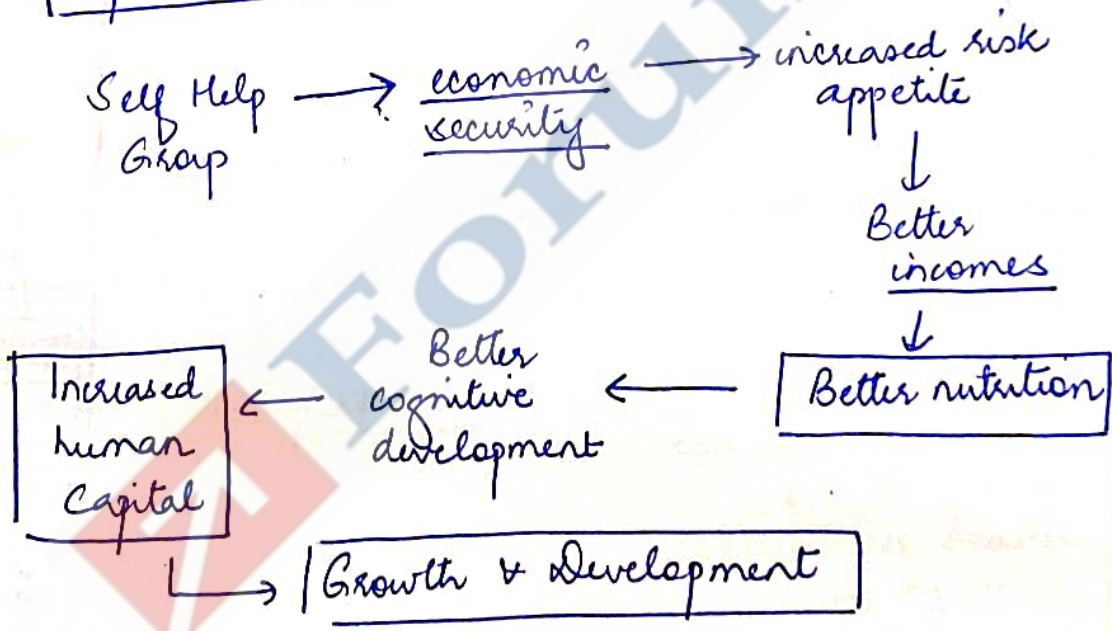 Self Help
Group
economic
security
increased risk
appetite
Better
incomes
Better nutrition
Better
cognitive
development
Increased
human
Capital
Growth & Development
Forum